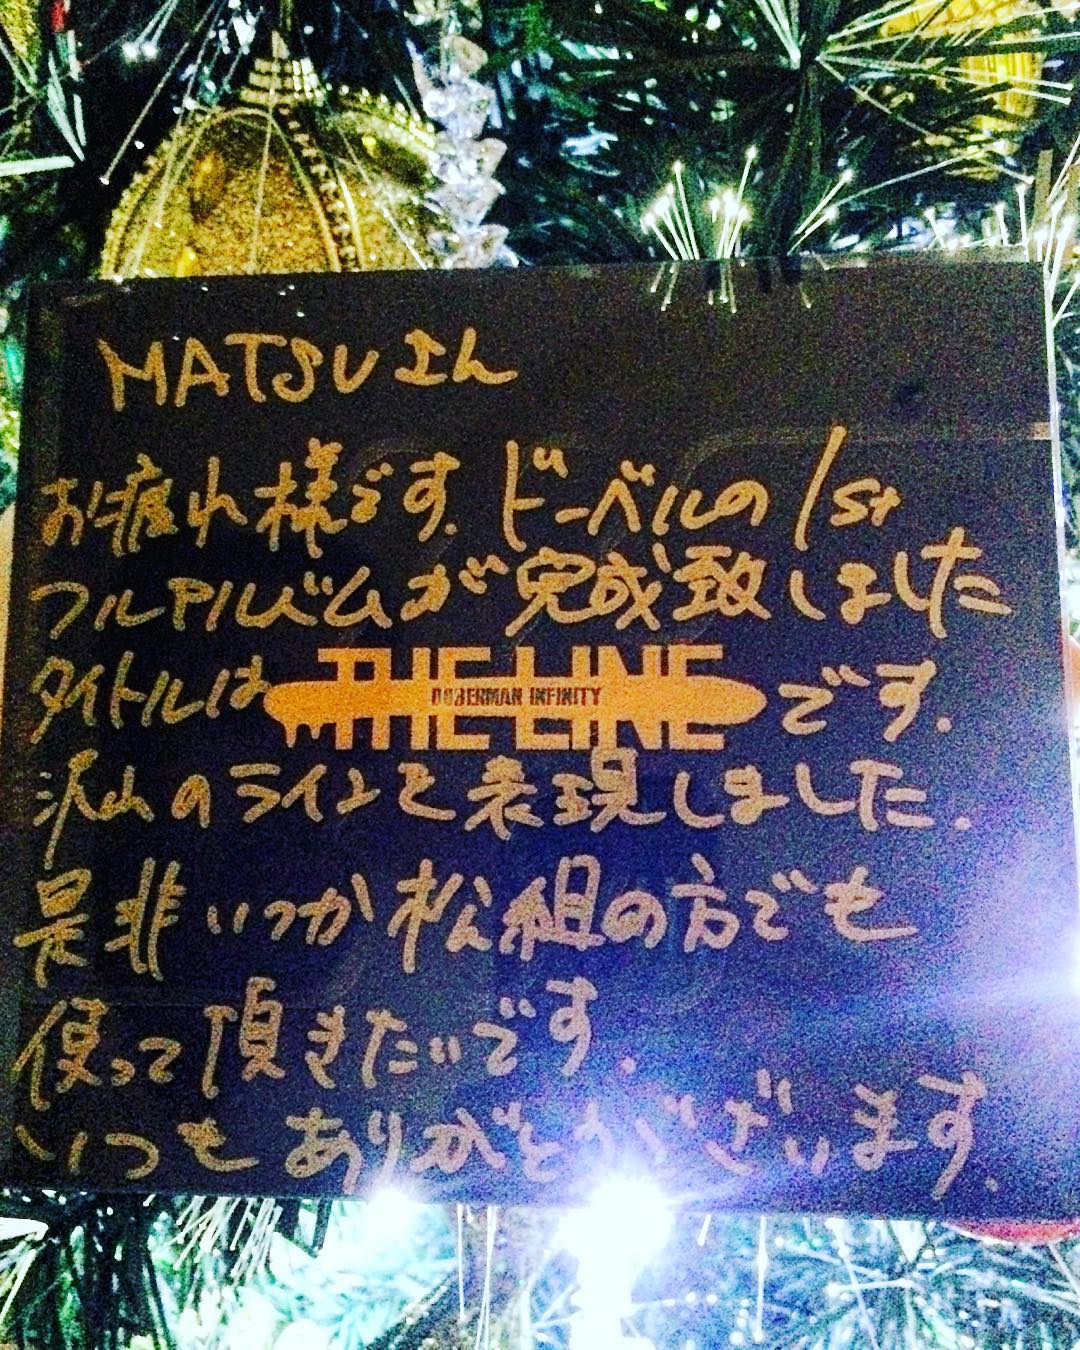 MATSUさん
お疲れ様です. ドーベルの1st
フルアルバムが完成致しました
タイトルは THE LINE です.
DOBERMAN INFINITY
沢山のラインを表現しました.
是非いつか松組の方でも
使って頂きたいです.
いつもありがとうございます.